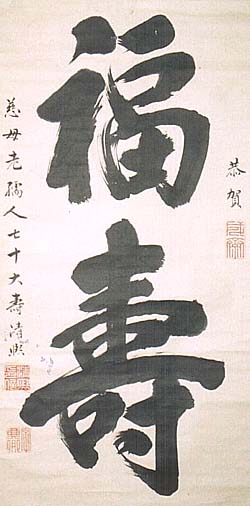 恭賀
福壽
慈母老孺人七十大壽清熙